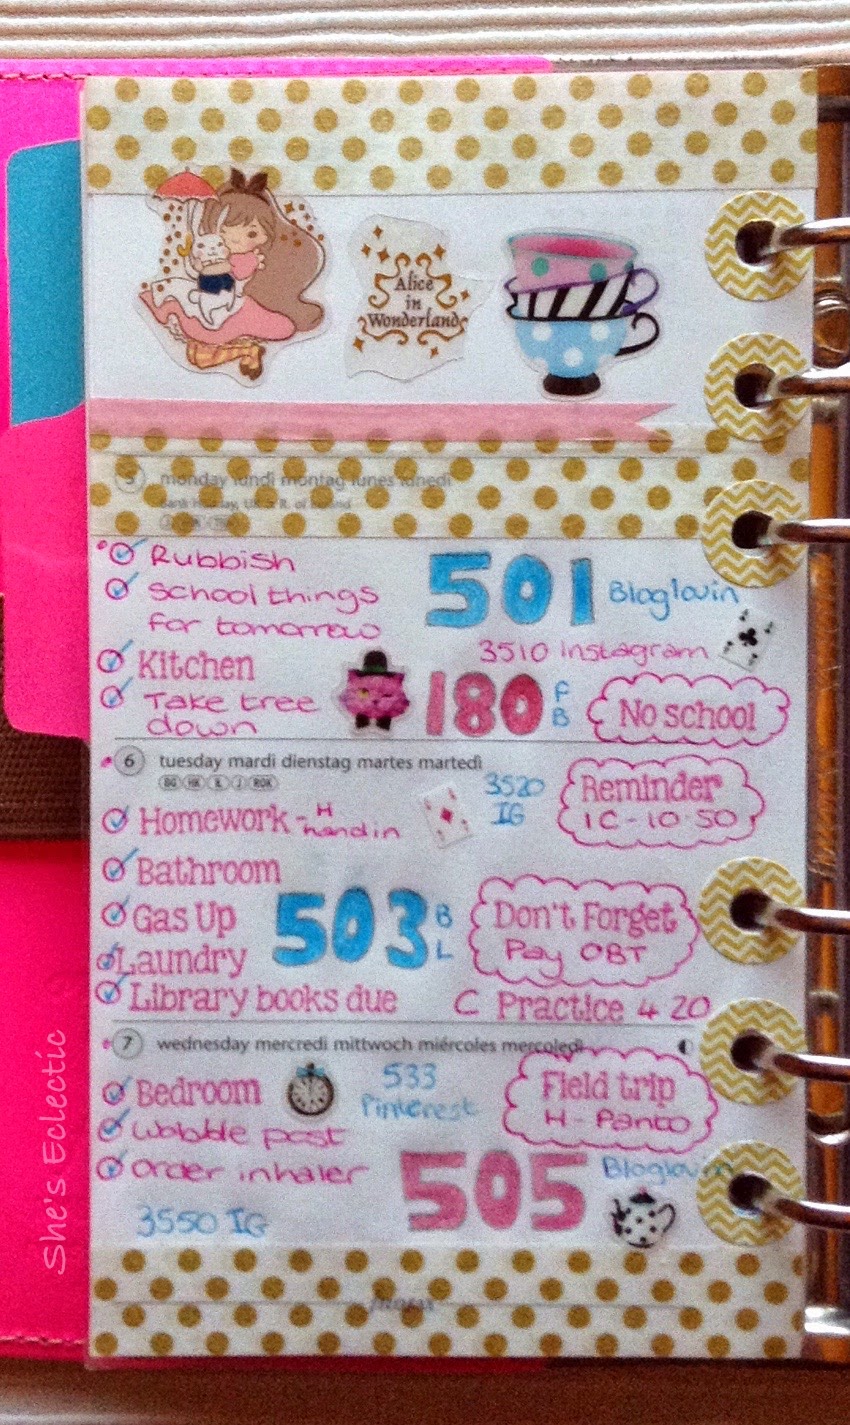 Alice
in
Wonderland
5 monday lundi montag lunes lunedì
Bank Holiday, UK & R. of Ireland
Rubbish
School things
for tomorrow
501 Bloglovin
3510 Instagram
Kitchen
Take tree
down
180 FB
No school
6 tuesday mardi dienstag martes martedì
BG HK IL J ROK
3520
IG
Reminder
1C - 10.50
Homework - H
hand in
Bathroom
Gas Up
503 BL
Don't Forget
Pay OBT
Laundry
Library books due
C Practice 4 20
7 wednesday mercredi mittwoch miércoles mercoledì
Bedroom
533
Pinterest
Field trip
H - Panto
Wobble post
Order inhaler
505 Bloglovin
3550 IG
She's Eclectic